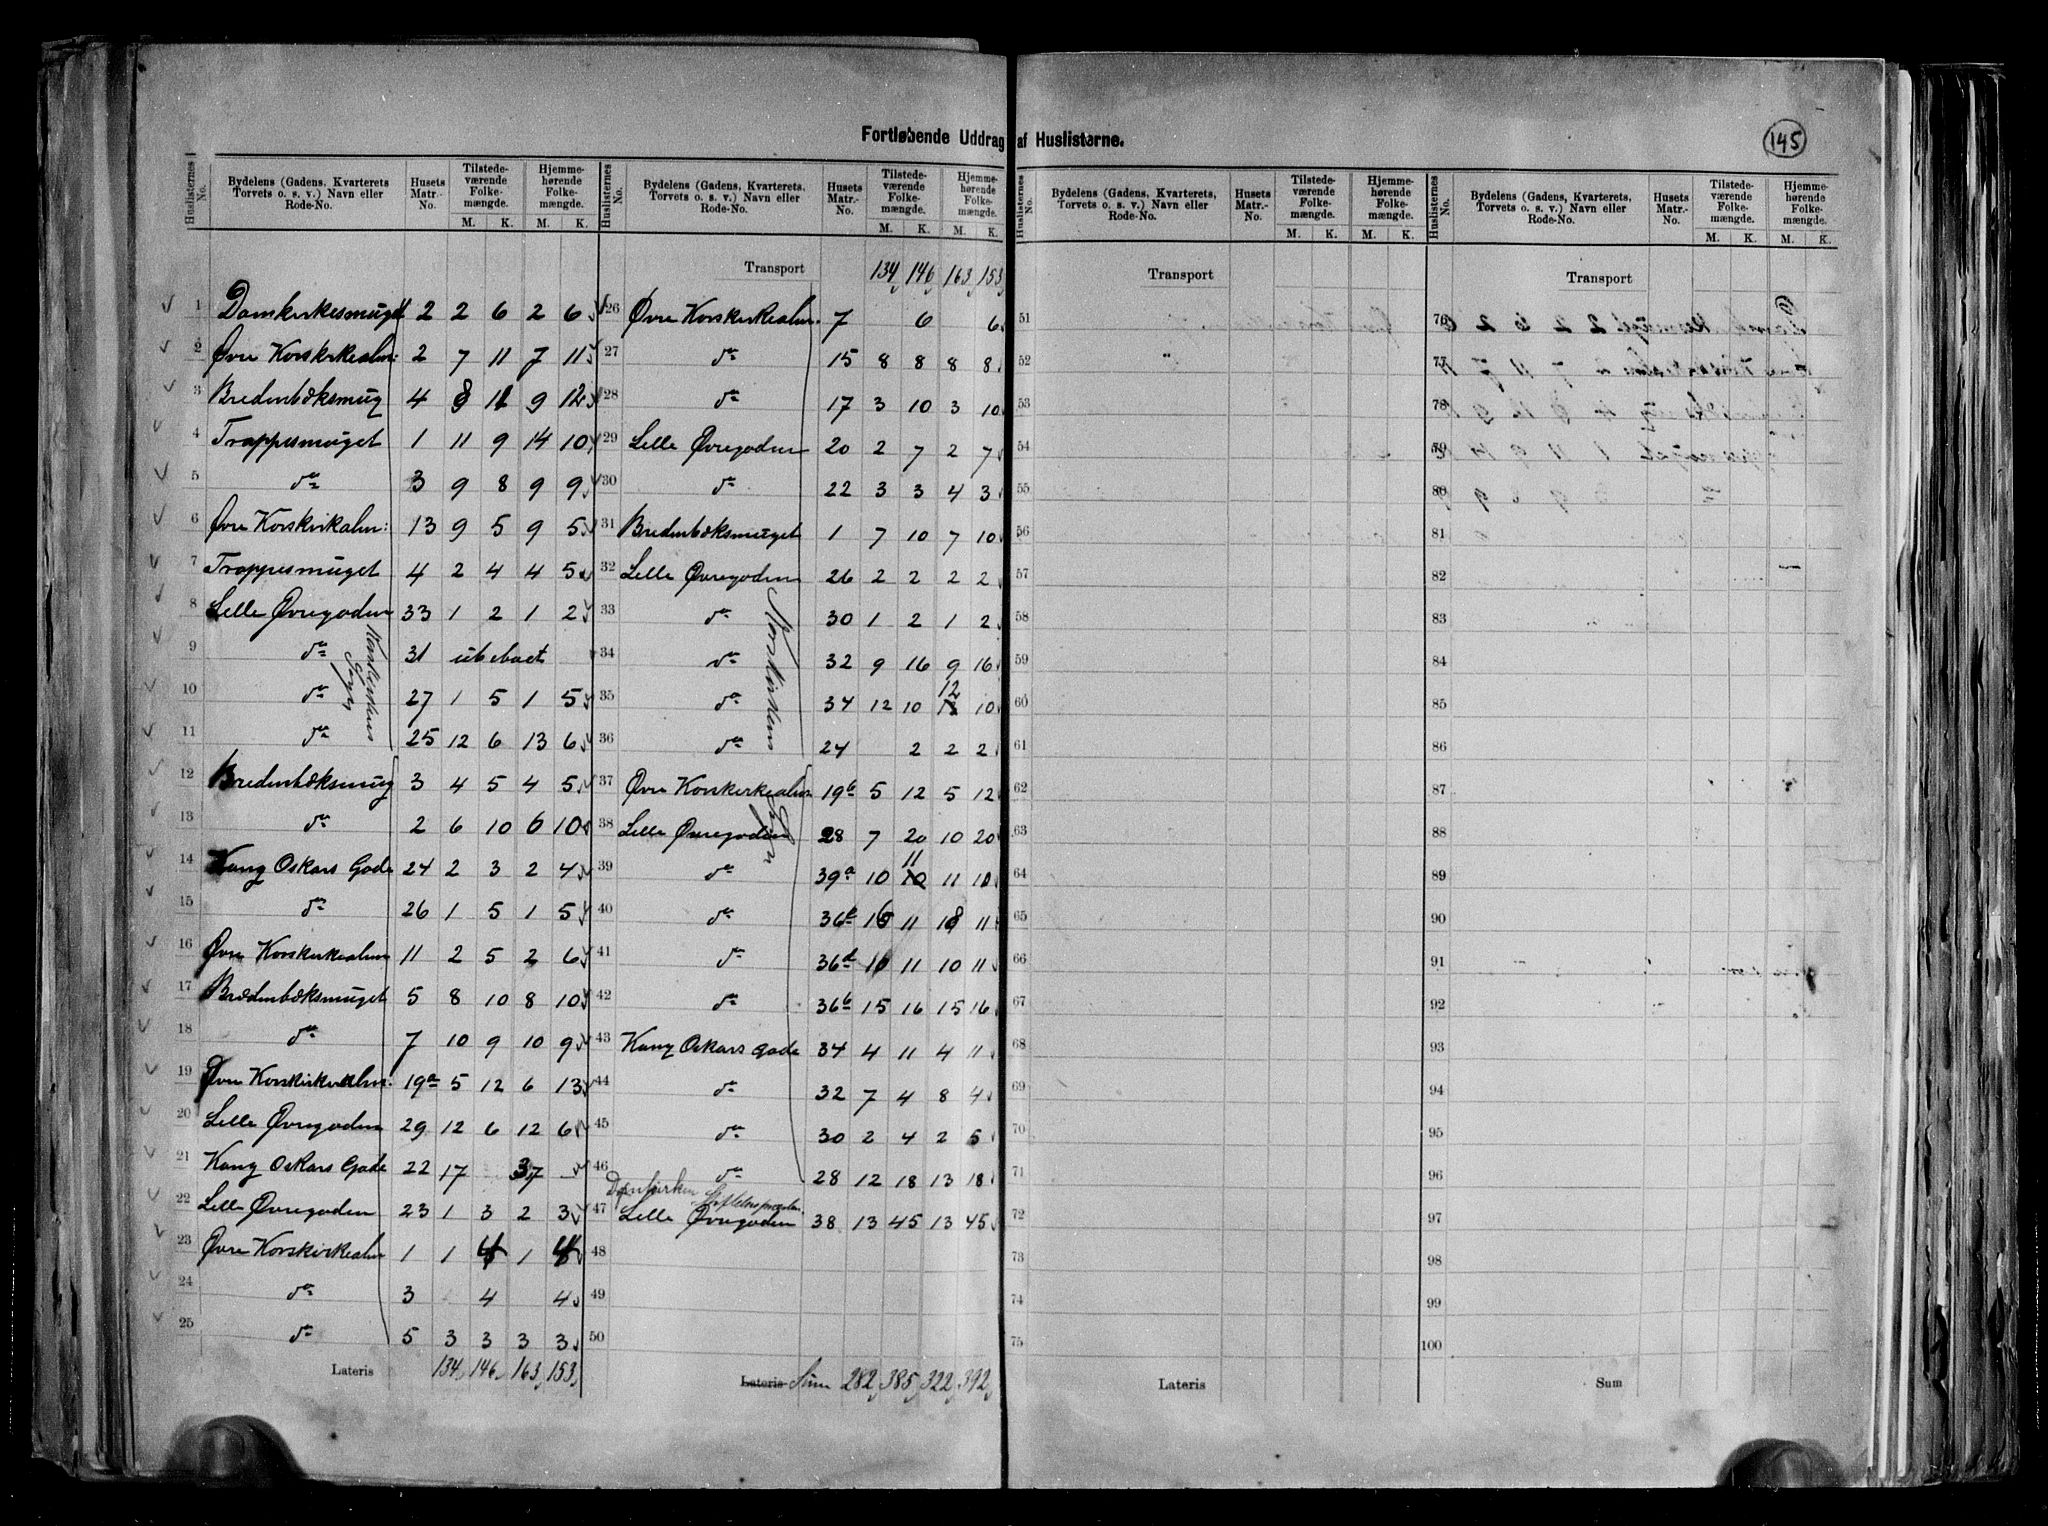 Fortløbende Uddrag af Huslisterne.
145
Huslisternes No. | Bydelens (Gadens, Kvarterets, Torvets o. s. v.) Navn eller Rode-No. | Husets Matr.-No. | Tilstedeværende Folkemængde. M. K. | Hjemmehørende Folkemængde. M. K.
1 Domkirkesmuget 2 2 6 2 6
2 Øvre Korskirkealm: 2 7 11 7 11
3 Bredenbæksmug 4 8 11 9 12
4 Trappesmuget 1 11 9 14 10
5 do 3 9 8 9 9
6 Øvre Korskirkalm: 13 9 5 9 5
7 Trappesmuget 4 2 4 4 5
8 Lille Øvregaden 33 1 2 1 2
9 do 31 ubeboet
10 do 27 1 5 1 5
11 do 25 12 6 13 6
Korskirkens Sogn
12 Bredenbæksmug 3 4 5 4 5
13 do 2 6 10 6 10
14 Kong Oskars Gade 24 2 3 2 4
15 do 26 1 5 1 5
16 Øvre Korskirkealm 11 2 5 2 6
17 Bredenbæksmuget 5 8 10 8 10
18 do 7 10 9 10 9
19 Øvre Korskirkealm: 19a 5 12 6 13
20 Lille Øvregaden 29 12 6 12 6
21 Kong Oskars Gade 22 17 37
22 Lille Øvregaden 23 1 3 2 3
23 Øvre Korskirkealm 1 1 4 1 4
24 do 3 4 4
25 do 5 3 3 3 3
Lateris 134 146 163 153
Huslisternes No. | Bydelens (Gadens, Kvarterets, Torvets o. s. v.) Navn eller Rode-No. | Husets Matr.-No. | Tilstedeværende Folkemængde. M. K. | Hjemmehørende Folkemængde. M. K.
Transport 134 146 163 153
26 Øvre Korskirkealm. 7 6 6
27 do 15 8 8 8 8
28 do 17 3 10 3 10
29 Lille Øvregaden 20 2 7 2 7
30 do 22 3 3 4 3
31 Bredenbæksmuget 1 7 10 7 10
32 Lille Øvregaden 26 2 2 2 2
33 do 30 1 2 1 2
34 do 32 9 16 9 16
35 do 34 12 10 12 10
36 do 24 2 2 2
Korskirkens Sogn
37 Øvre Korskirkealm 19b 5 12 5 12
38 Lille Øvregaden 28 7 20 10 20
39 do 39a 10 11 11 10
40 do 36e 16 11 18 11
41 do 36d 10 11 10 11
42 do 36b 15 16 15 16
43 Kong Oskars Gade 34 4 11 4 11
44 do 32 7 4 8 4
45 do 30 2 4 2 5
46 do 28 12 18 13 18
Domkirken
47 Lille Øvregaden 38 13 45 13 45
48
49
50
Lateris Sum 282 385 322 392
Huslisternes No. | Bydelens (Gadens, Kvarterets, Torvets o. s. v.) Navn eller Rode-No. | Husets Matr.-No. | Tilstedeværende Folkemængde. M. K. | Hjemmehørende Folkemængde. M. K.
Transport
51
52
53
54
55
56
57
58
59
60
61
62
63
64
65
66
67
68
69
70
71
72
73
74
75
Lateris
Huslisternes No. | Bydelens (Gadens, Kvarterets, Torvets o. s. v.) Navn eller Rode-No. | Husets Matr.-No. | Tilstedeværende Folkemængde. M. K. | Hjemmehørende Folkemængde. M. K.
Transport
76
77
78
79
80
81
82
83
84
85
86
87
88
89
90
91
92
93
94
95
96
97
98
99
100
Sum